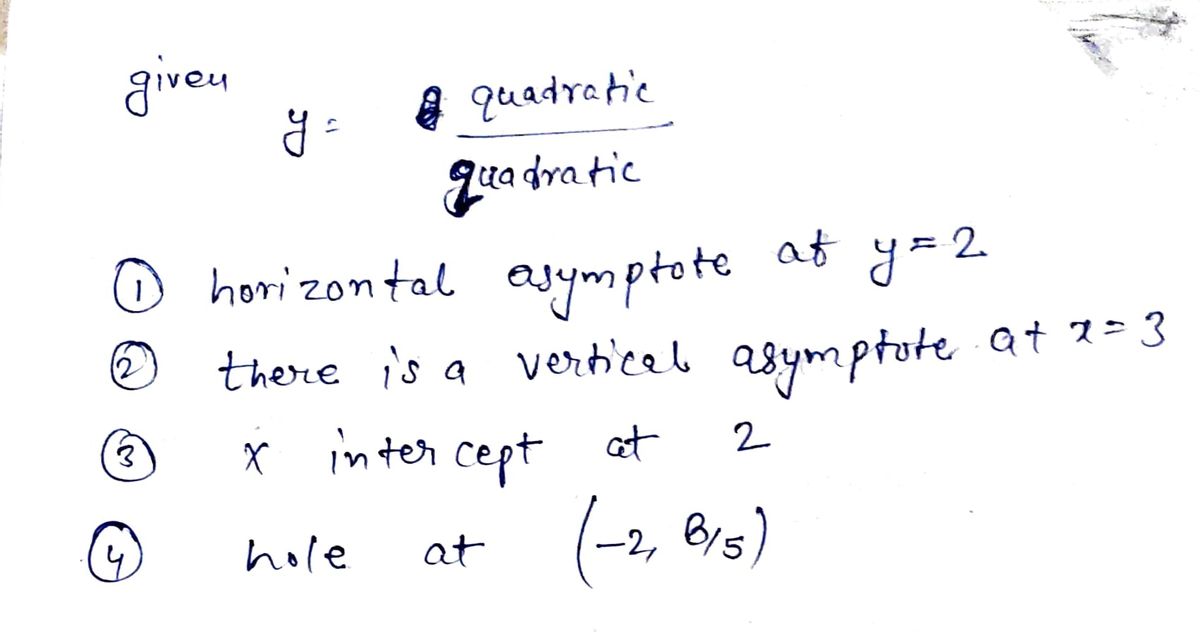 given
y = quadratic
quadratic
① horizontal asymptote at y = 2
② there is a vertical asymptote at x = 3
③ x intercept at 2
④ hole at (-2, 8/5)